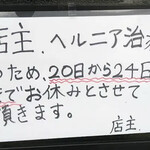 店主、ヘルニア治
のため、20日から24日
までお休みとさせて
頂きます。
店主.